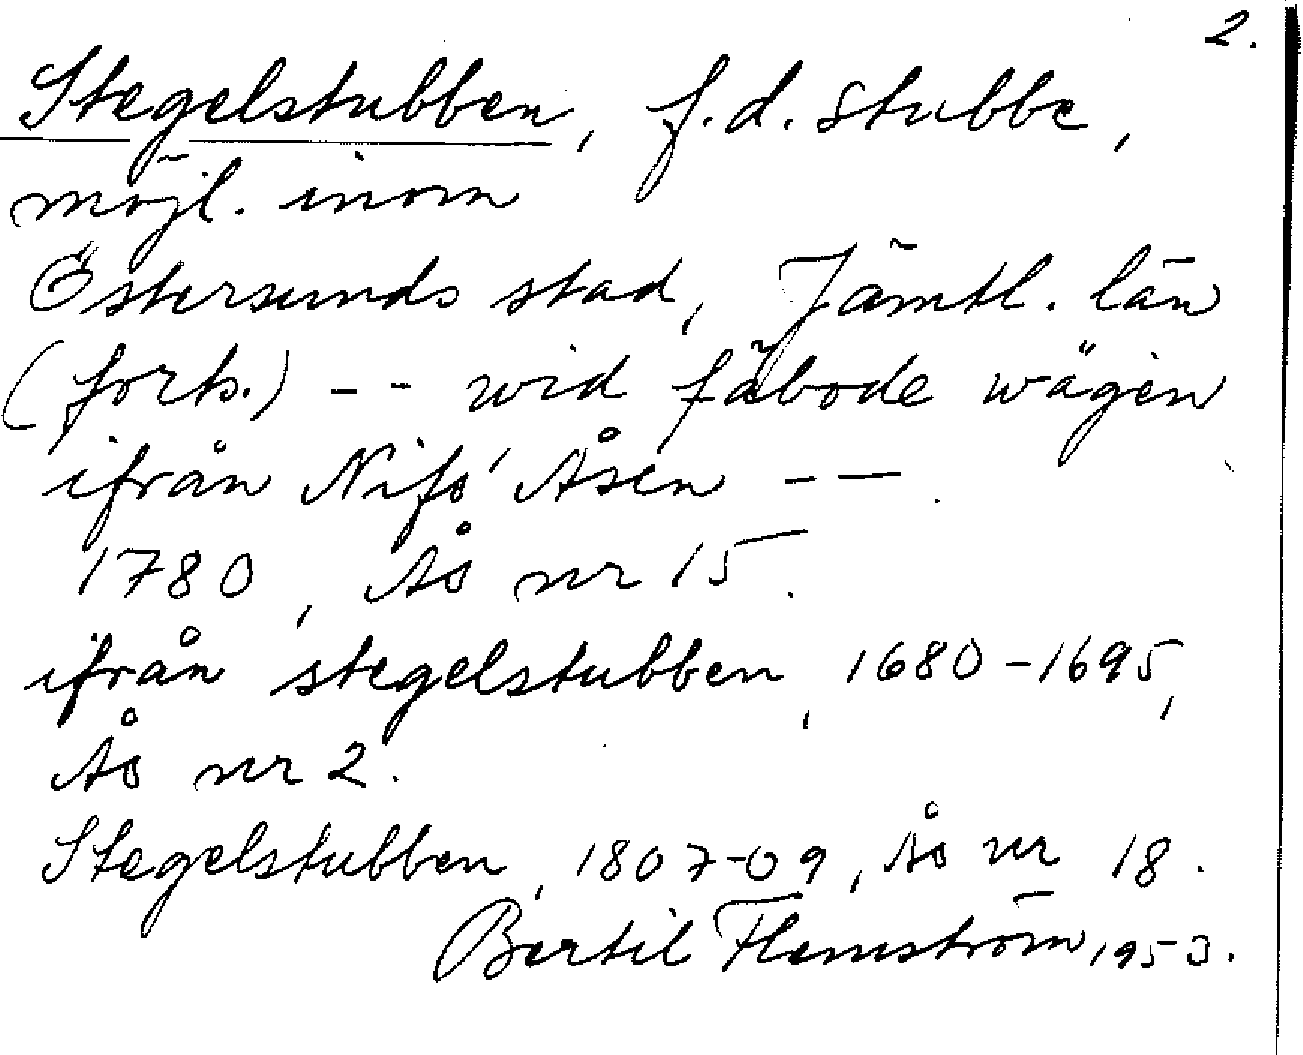 2.
Stegelstubben, f.d. stubbe,
möjl. inom
Östersunds stad, Jämtl. län
(forts.) -- wid fäbode wägen
ifrån Nifs' Åsen --.
1780, Ås nr 15.
ifrån stegelstubben, 1680-1695,
Ås nr 2.
Stegelstubben, 1807-09, Ås nr 18.
Bertil Flemström 1953.